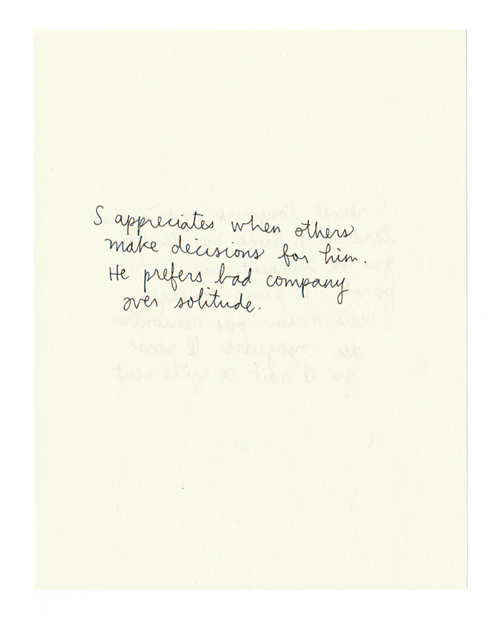 S appreciates when others
make decisions for him.
He prefers bad company
over solitude.